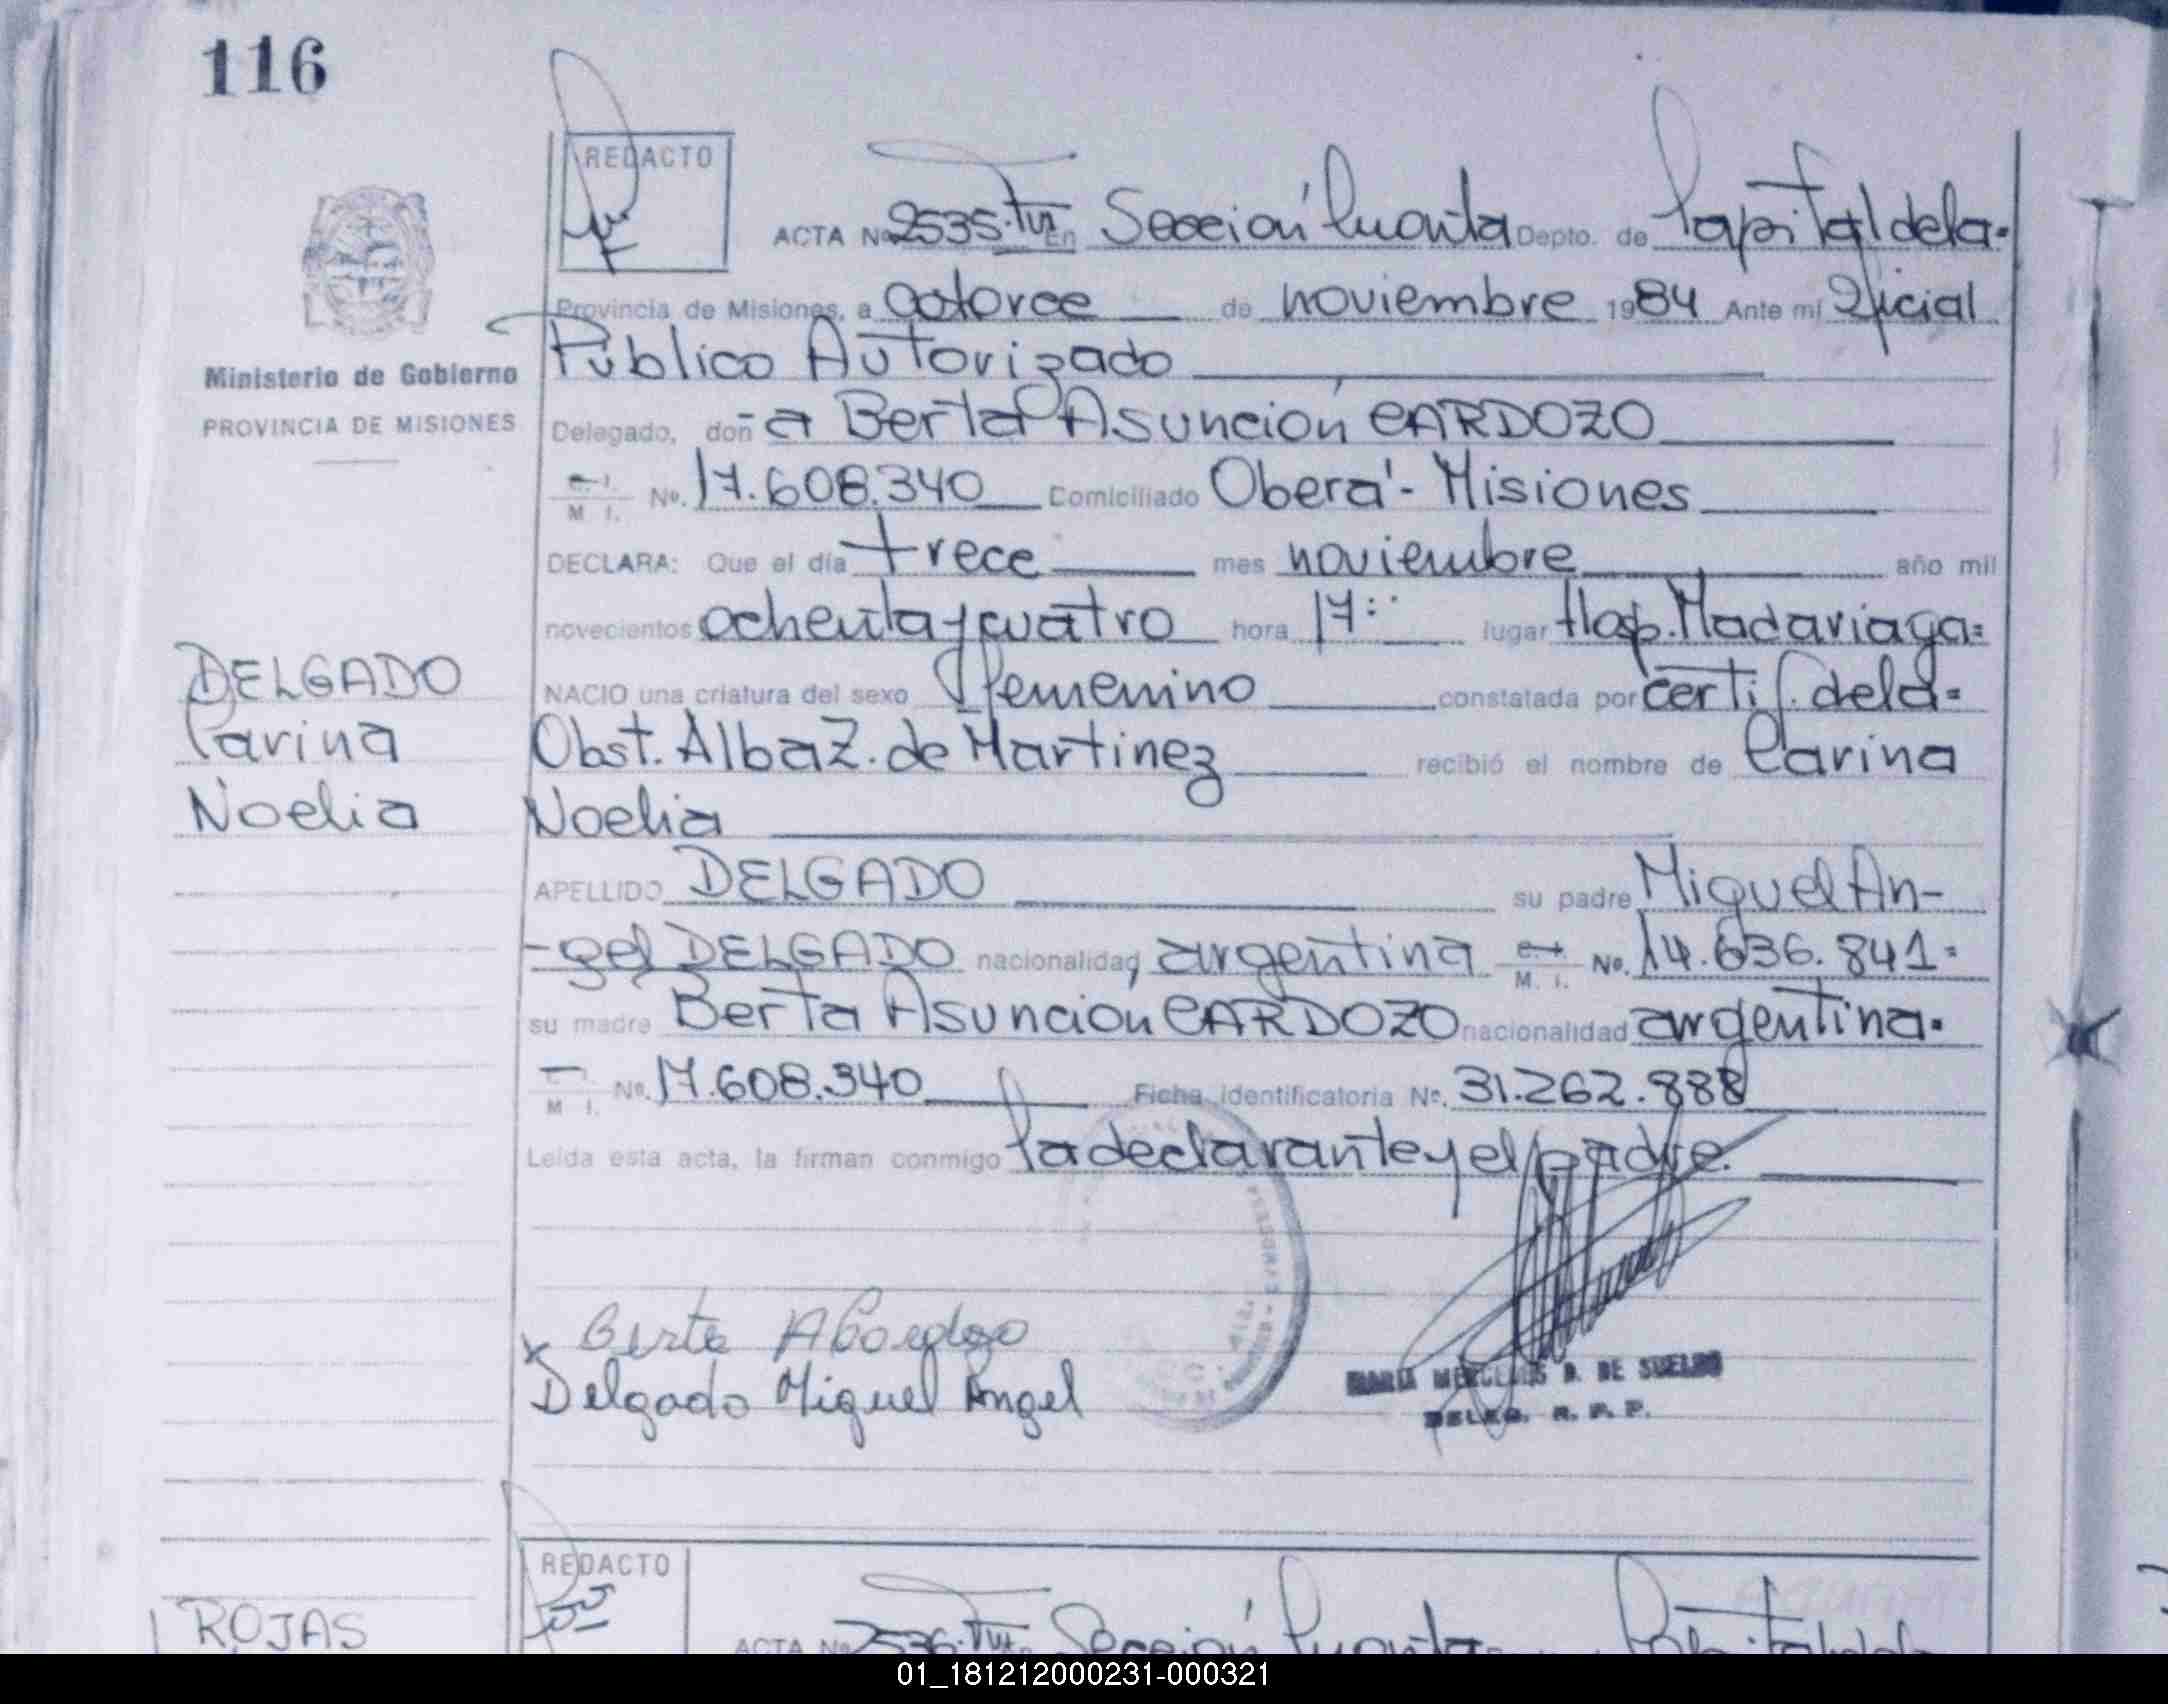 116
REDACTO
ACTA Nº 2535. TVI En Sección Cuarta Depto. de Capital dela-
Provincia de Misiones, a catorce de noviembre 1984 Ante mí Oficial
Público Autorizado
Ministerio de Gobierno
PROVINCIA DE MISIONES
Delegado, doñ a Berta Asunción CARDOZO
M I. No. 17.608.340 Domiciliado Oberá - Misiones
DECLARA: Que el día trece mes noviembre año mil
novecientos ochenta y cuatro hora 17: lugar Hosp. Madariaga=
DELGADO
Carina
Noelia
NACIO una criatura del sexo femenino constatada por certif. dela=
Obst. Alba Z. de Martinez recibió el nombre de Carina
Noelia
APELLIDO DELGADO su padre Miguel An-
-gel DELGADO nacionalidad argentina M. I. No. 14.636.841=
su madre Berta Asunción CARDOZO nacionalidad argentina.
M I. No. 17.608.340 Ficha identificatoria No. 31.262.888
Leída esta acta, la firman conmigo la declarante y el padre.
Berta A Cardozo
x Delgado Miguel Angel
MARIA MERCEDES B. DE SUELDO
DELEG. R. P. P.
REDACTO
ROJAS
ACTA No 2536. TVI En Sección Cuarta Capital dela
01_181212000231-000321